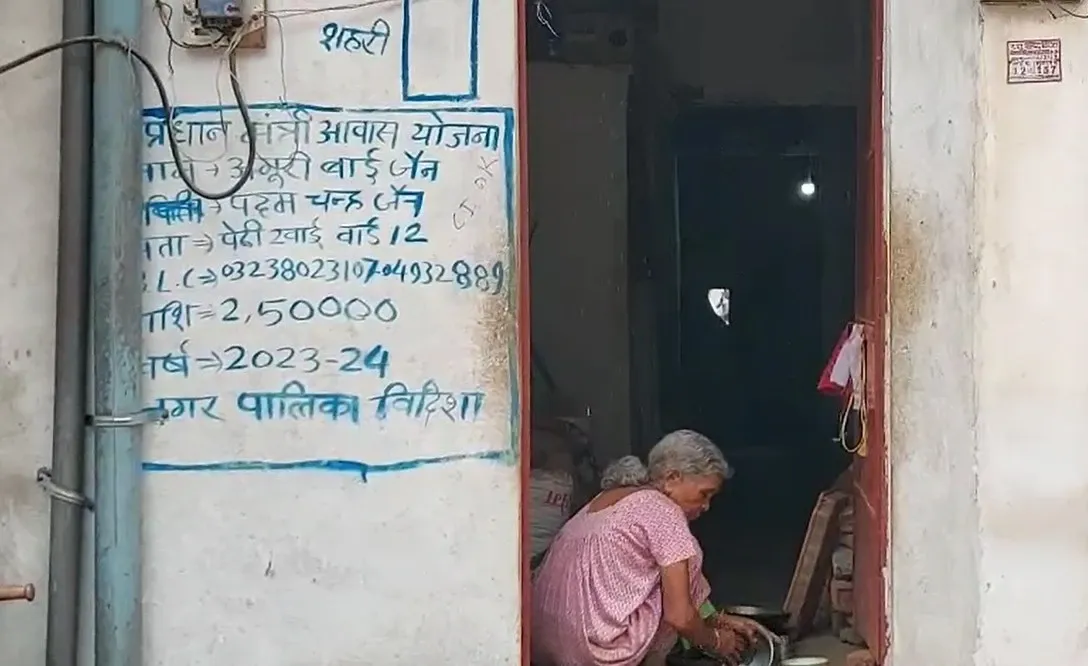 शहरी
प्रधान मंत्री आवास योजना
नाम → अंगूरी बाई जैन
→ पदम चन्द्र जैन
पता ⇒ पेढी खाई वार्ड 12
B.L.C ⇒ 0323802310704932889
राशि = 2,50000
वर्ष ⇒ 2023-24
नगर पालिका विदिशा